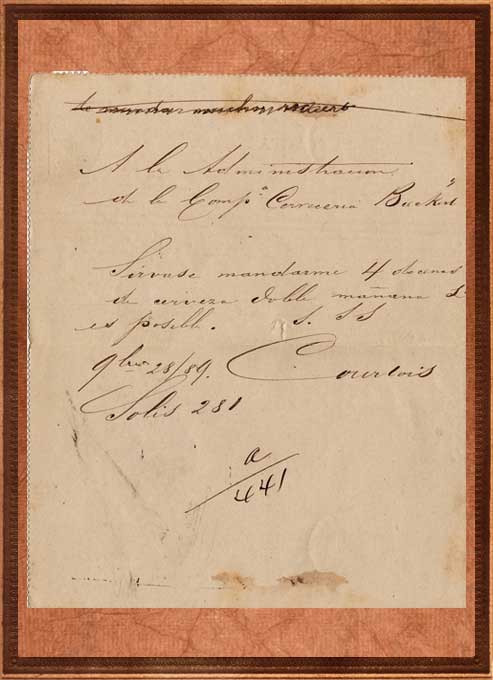 A la Administracion
de la Comp.ª Cerveceria Bieckert
Sirvase mandarme 4 docenas
de cerveza doble mañana si
es posible. S. SS
9bre 28/89. Courtois
Solis 281
a
441